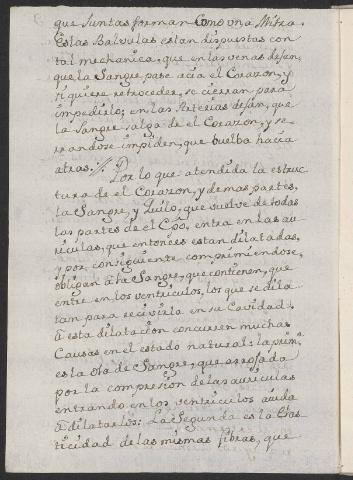 que Juntas forman Como vna Mitra.
Estas Balvulas estan dispuestas con
tal mechanica, que en las venas dejan,
que la Sangre pase acia el Corazon, y
si quiere retroceder, se cierran para
impedirlo; en las Arterias dejan, que
la Sangre salga de el Corazon, y ce
rrandose impiden, que buelba hacia
atras.
Por lo que atendida la estruc
tura de el Corazon, y demas partes,
la Sangre, y Quilo, que vuelve de todas
las partes de el Cpo, entra en las au
riculas, que entonces estan dilatadas,
y por consiguiente comprimiendose,
obligan à la Sangre, que contienen, que
entre en los ventriculos, los que se dila
tam para recivirla en su Cavidad.
à esta dilatacion concurren muchas
Causas en el estado natural: la prim.
es la ola de Sangre, que arrojada
por la compresion de las auriculas
entrando en los ventriculos aiuda
à dilatarlos: La Segunda es la Elas
ticidad de las mismas fibras, que